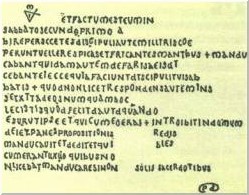 ETFACTUMESTEUMIN
SABBATOSECUNDOPRIMO A
BIREPERSCCETESDISCIPULIAUTEMILLIRISCOE
PERUNTVELLERESPICASETFRICANTESMANIBUS + MANDU
CABANTQUIDAMAUTEMDEFARISAEISDT
CEBANTEIECCEQUIAFACIUNTDISCIPULITUISAB
BATIS + QUODNONLICETRESPONDENSAUTEMINS
SETXTTADEOSNUMQUAMHOC
LECISTISQUODFECITDAUTDQUANDO
ESURUTIPSEETQUICUMEOERAT + INTROIBITINDOMUM
DEIETPANESPROPOSITIONIS REDIS
MANDUCAUITETDEDITETQUI BLES
CUMERANTUXUO QUIBUSNO
NLICEBATMANDUCARESINON SOLIS SACERDOTIBUS